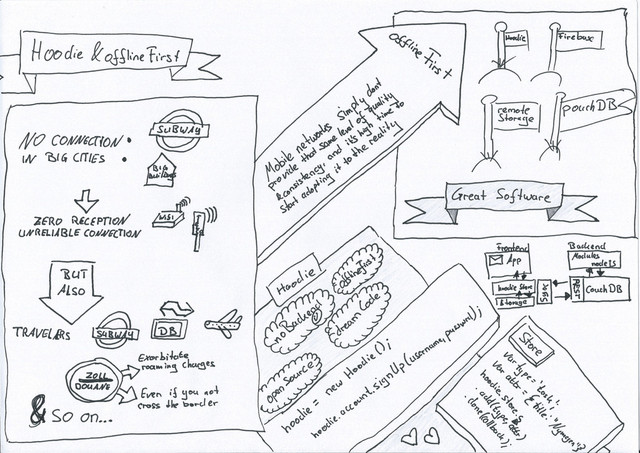 Hoodie & offline First
NO CONNECTION
IN BIG CITIES
SUBWAY
BIG
Buildings
ZERO RECEPTION
UNRELIABLE CONNECTION
WiFi
BUT
ALSO
TRAVELERS
SUBWAY
DB
ZOLL
DOUANE
Exorbitate
roaming charges
Even if you not
cross the border
& SO ON...
offline First
Mobile networks simply dont
provide that same level of quality
& consistency, and it's high time to
start adapting it to the reality
Hoodie
Firebase
remote
Storage
pouchDB
Great Software
Hoodie
offline First
no Backend
dream code
open source
hoodie = new Hoodie();
hoodie.account.signUp(username, password);
Frontend
App
hoodie.store
Storage
Backend
Modules
nodeJS
REST
CouchDB
Store
var type =
var attr = { title:
hoodie.store
.add(type, attr)
.done(callback);